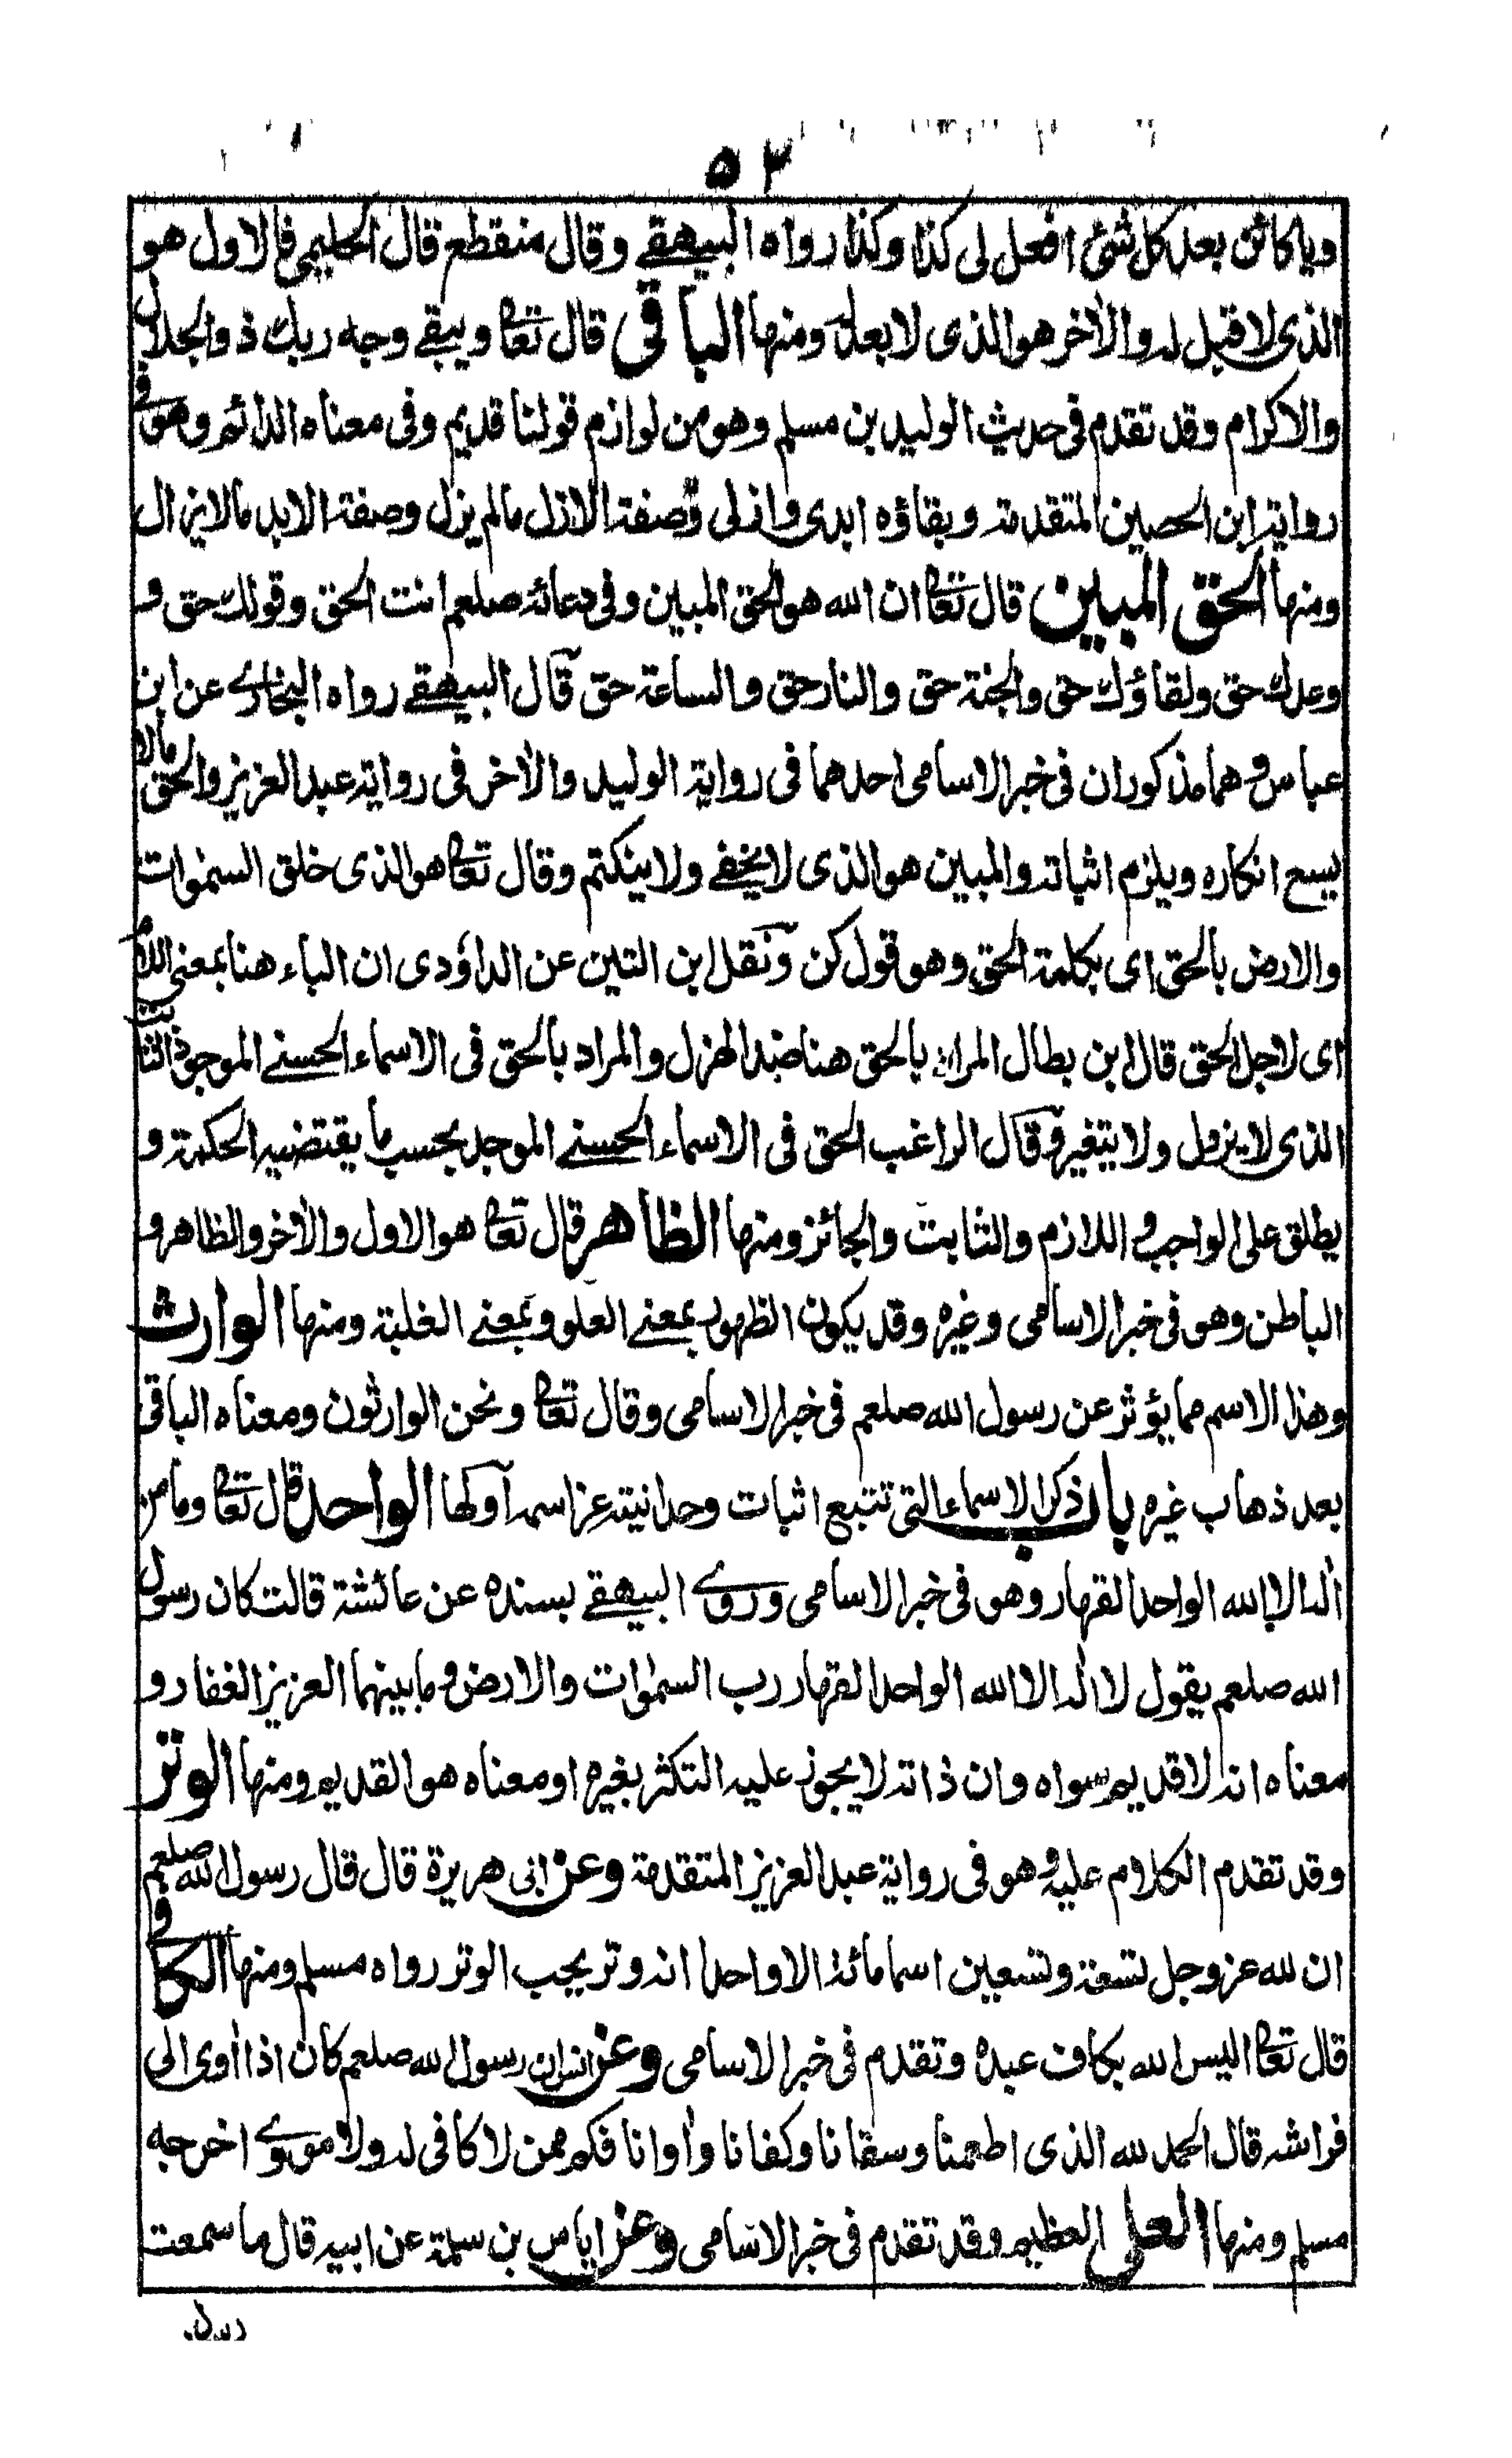 ٥٢
ويا كائن بعد كل شئ افعل لى كذا وكذا رواه البيهقے وقال منقطع قال الحليمي فالاول هو
الذى لا قبل له والاٰخر هو الذى لا بعد له ومنها الباقى قال تعالى ويبقے وجه ربك ذو الجلال
والاكرام وقد تقدم فى حديث الوليد بن مسلم وهو من لوازم قولنا قديم وفى معناه الدائم وهو فى
رواية ابن الحصين المتقدمة وبقاؤه ابدى وازلى وصفة الازل مالم يزل وصفة الابد مالا يزال
ومنها الحق المبين قال تعالى ان الله هو الحق المبين وفى دعائه صلعم انت الحق وقولك حق و
وعدك حق ولقاؤك حق والجنة حق والنار حق والساعة حق قال البيهقے رواه البخارے عن ابن
عباس وهما مذكوران فى خبر الاسامى احدهما فى رواية الوليد والاٰخر فى رواية عبد العزيز والحق مالا
يسع انكاره ويلزم اثباته والمبين هو الذى لا يخفے ولا ينكتم وقال تعالى هو الذى خلق السمٰوات
والارض بالحق اى بكلمة الحق وهو قول كن ونقل ابن التين عن الداؤدى ان الباء هنا بمعنى اللام
اى لاجل الحق قال ابن بطال المراد بالحق هنا ضد الهزل والمراد بالحق فى الاسماء الحسنے الموجود الثابت
الذى لا يزول ولا يتغير وقال الراغب الحق فى الاسماء الحسنے الموجد بحسب ما يقتضيه الحكمة و
يطلق على الواجب و اللازم والثابت والجائز ومنها الظاهر قال تعالى هو الاول والاٰخر والظاهر و
الباطن وهو فى خبر الاسامى وغيره وقد يكون الظهور بمعنے العلو وبمعنے الغلبة ومنها الوارث
وهذا الاسم مما يؤثر عن رسول الله صلعم فى خبر الاسامى وقال تعالى ونحن الوارثون ومعناه الباقى
بعد ذهاب غيره باب ذكر الاسماء التى تتبع اثبات وحدانيته عز اسمه اولها الواحد قال تعالى وما من
اله الا الله الواحد القهار وهو فى خبر الاسامى وروے البيهقے بسنده عن عائشة قالت كان رسول
الله صلعم يقول لا اله الا الله الواحد القهار رب السمٰوات والارض وما بينهما العزيز الغفار و
معناه انه لا قديم سواه وان ذاته لا يجوز عليه التكثر بغيره او معناه هو القديم ومنها الوتر
وقد تقدم الكلام عليه وهو فى رواية عبد العزيز المتقدمة وعن ابى هريرة قال قال رسول الله صلعم
ان لله عز وجل تسعة وتسعين اسما مائة الا واحدا انه وتر يحب الوتر رواه مسلم ومنها الكافى
قال تعالى اليس الله بكاف عبده وتقدم فى خبر الاسامى وعن انس ان رسول الله صلعم كان اذا اوى الى
فراشه قال الحمد لله الذى اطعمنا وسقانا وكفانا واٰوانا فكم ممن لا كافى له ولا مووے اخرجه
مسلم ومنها العلى العظيم وقد تقدم فى خبر الاسامى وعن اياس بن سلمة عن ابيه قال ما سمعت
رسول